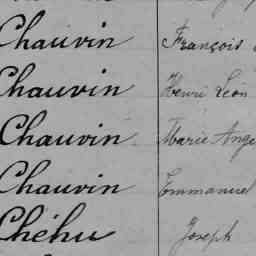 Chauvin François
Chauvin Henri Léon
Chauvin Marie Ange
Chauvin Emmanuel
Chéhu Joseph